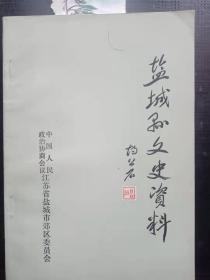 盐城县文史资料
中国人民
政治协商会议江苏省盐城市郊区委员会